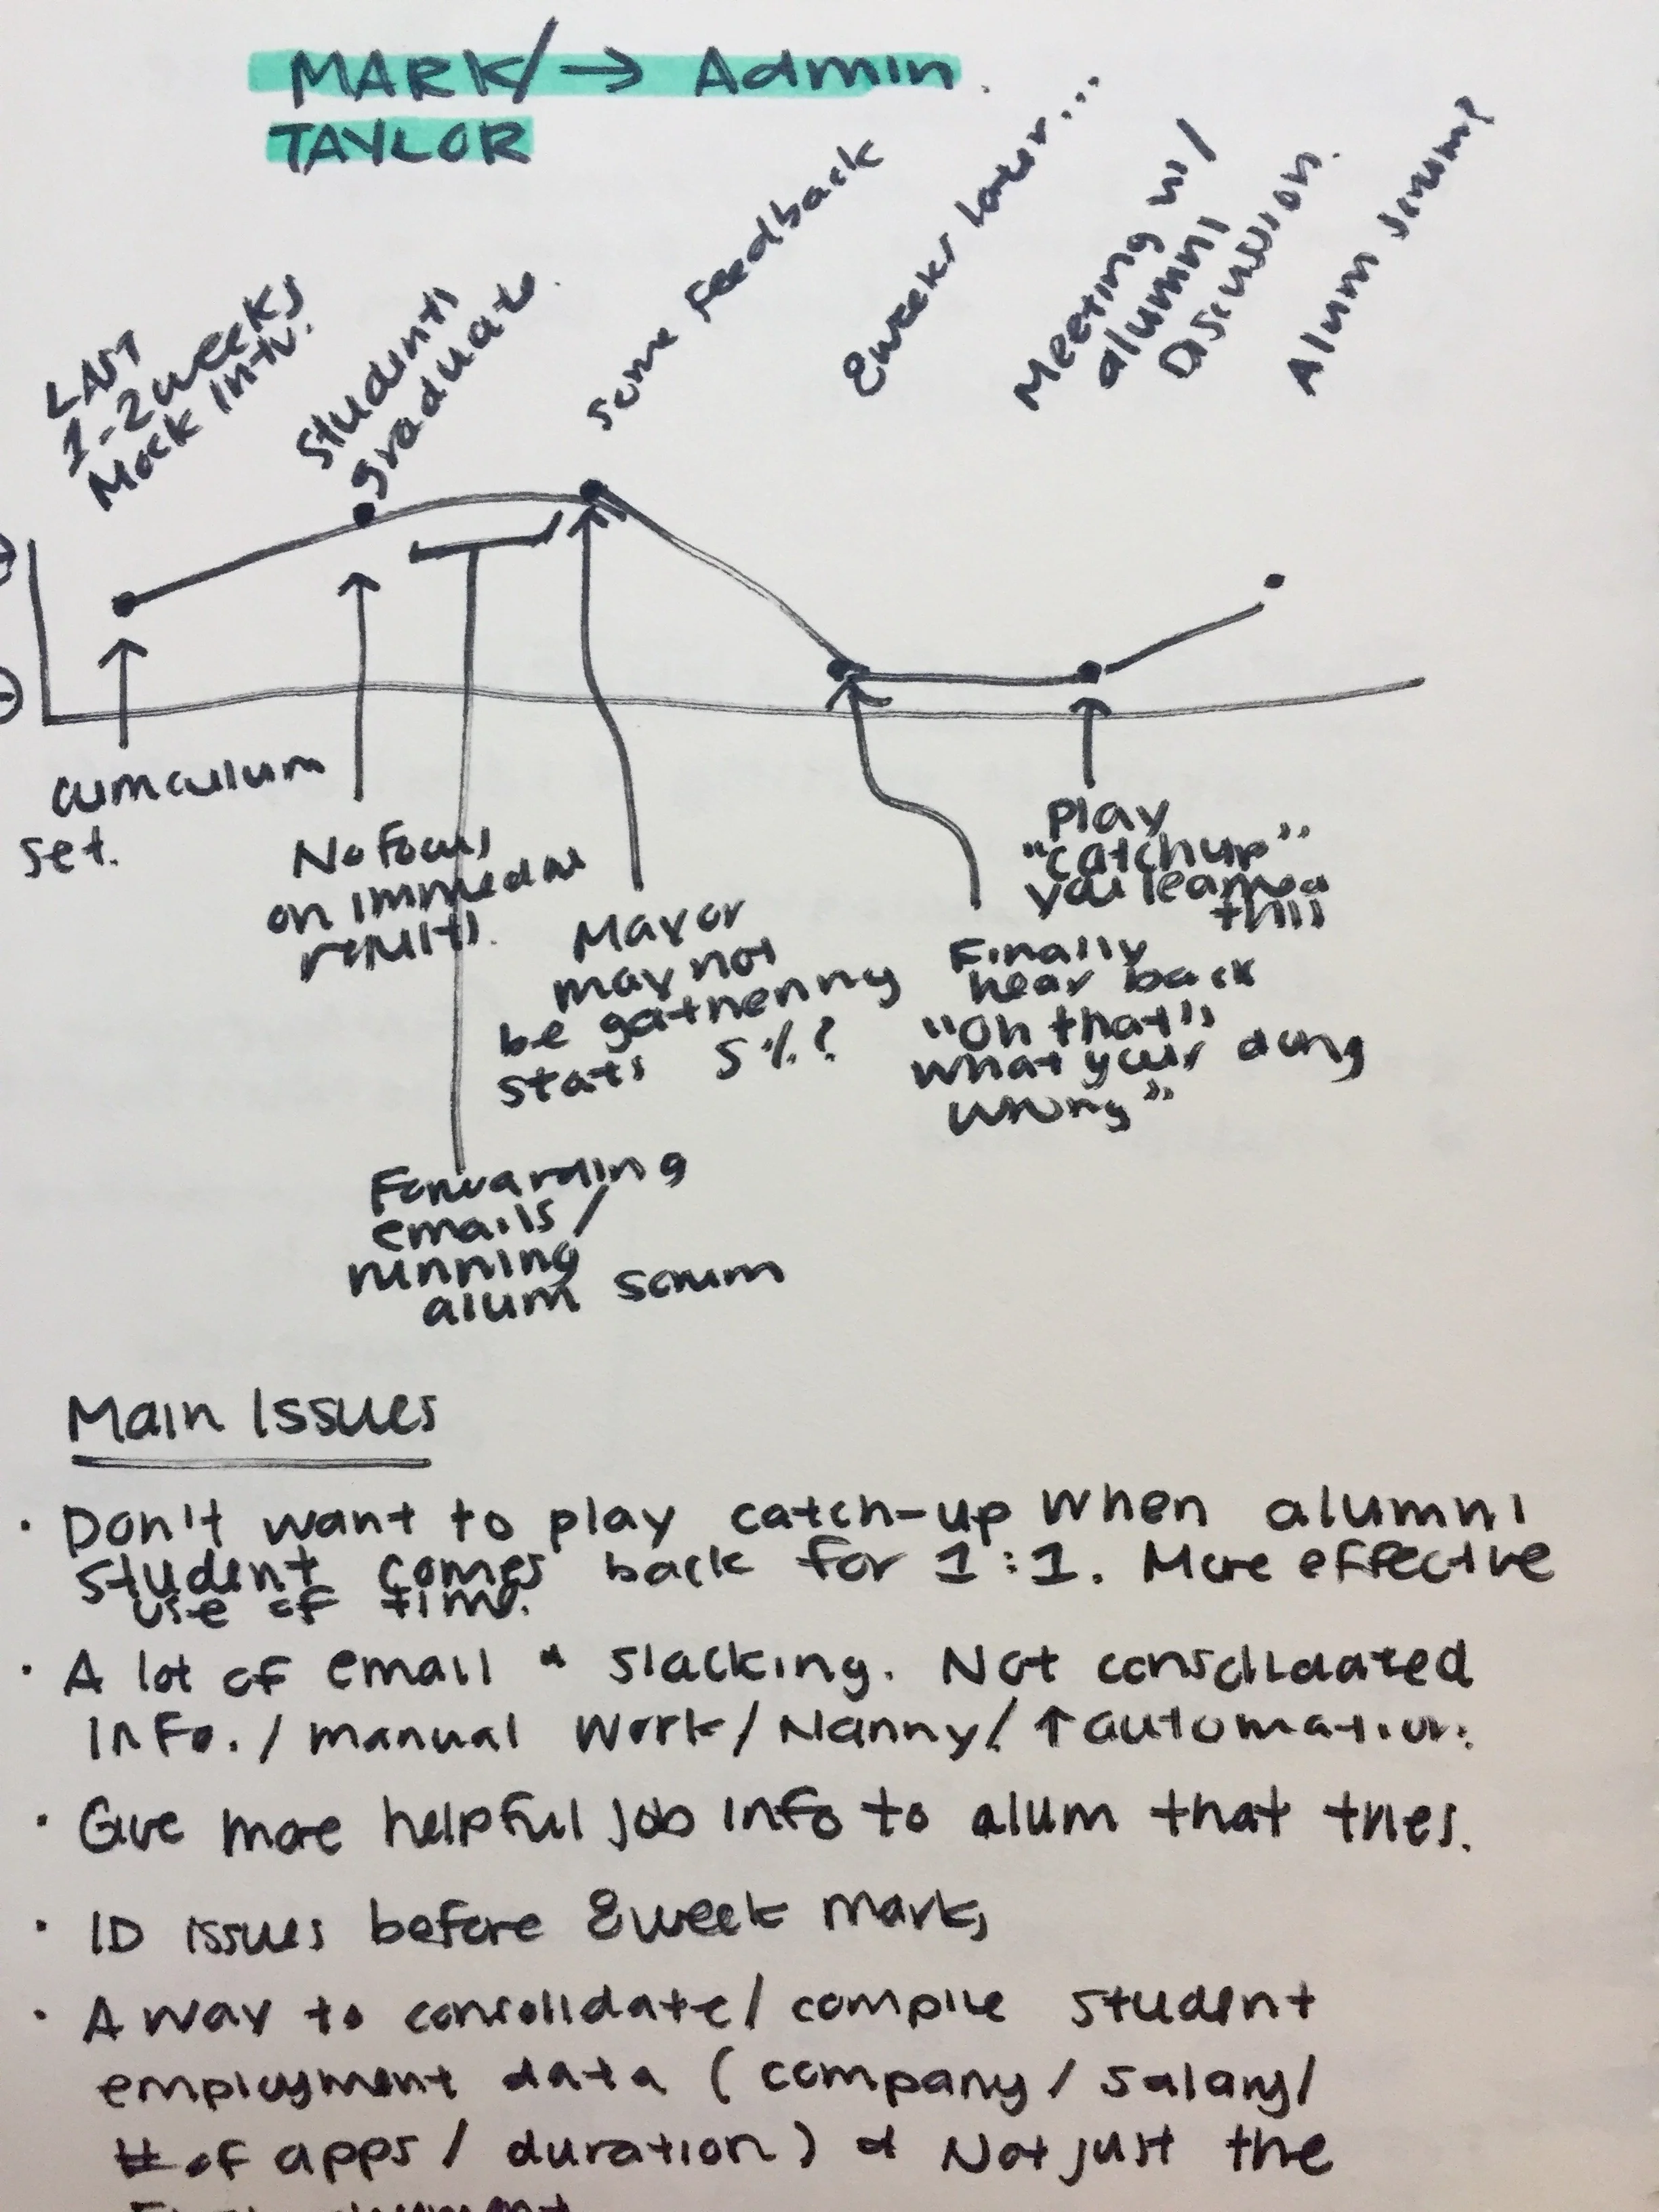 MARK/ → Admin.
TAYLOR
LAST
1-2 weeks
Mock Intv.
Students
graduate.
Some Feedback
8 weeks later...
Meeting w/
alumni
Discussion.
Alum scrum?
curriculum
set.
No focus
on immediate
results.
May or
may not
be gathering
stats 5%?
Play
"catchup"
you learned
this
Finally
hear back
"Oh that's
what your doing
wrong"
Forwarding
emails /
running
alum scrum
Main Issues
· Don't want to play catch-up when alumni
student comes back for 1:1. More effective
use of time.
· A lot of email & slacking. Not consolidated
info. / manual work / Nanny / ↑ automation.
· Give more helpful job info to alum that tries.
· ID issues before 8 week mark,
· A way to consolidate / compile student
employment data ( company / salary /
# of apps / duration ) & Not just the